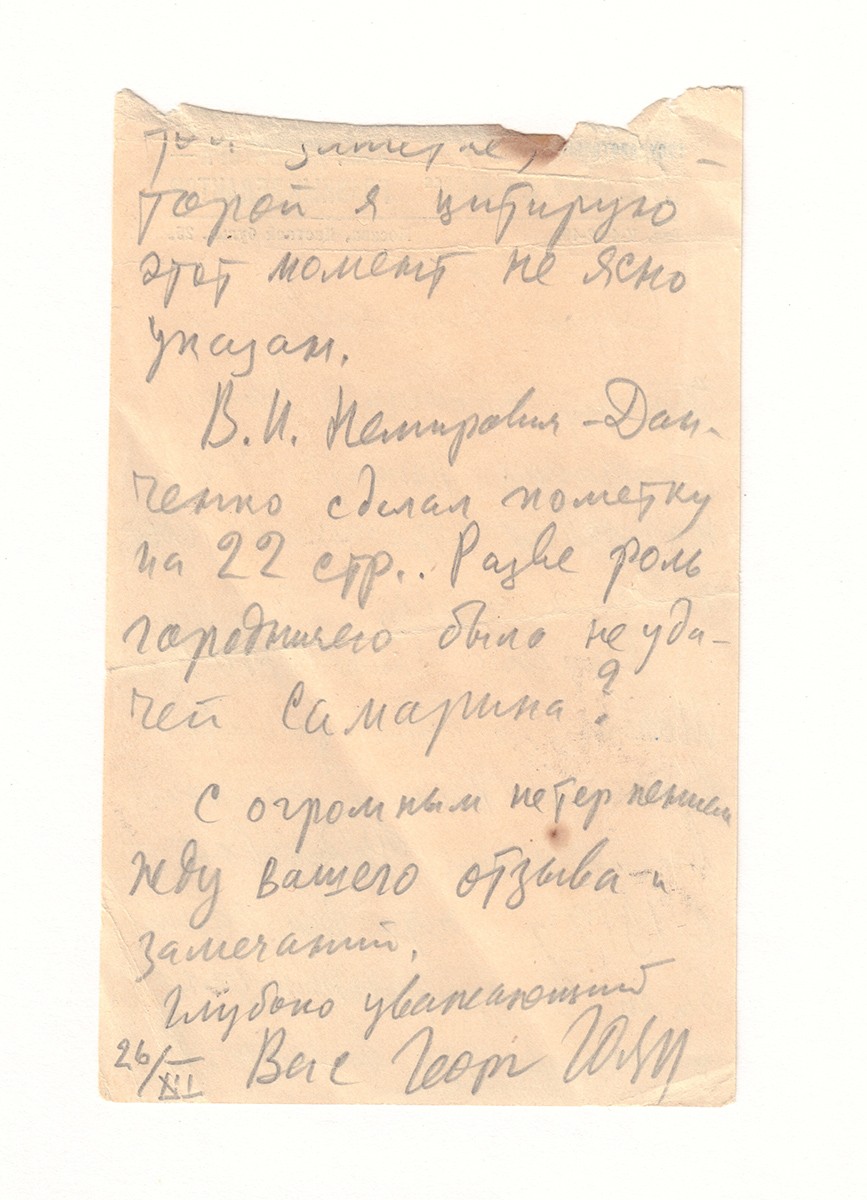 торой я цитирую
этот момент не ясно
указан.
В. И. Немирович-Дан-
ченко сделал пометку
на 22 стр.. Разве роль
городничего была неуда-
чей Самарина?
С огромным нетерпением
жду вашего отзыва и
замечаний.
Глубоко уважающий
26/XII Вас Георг